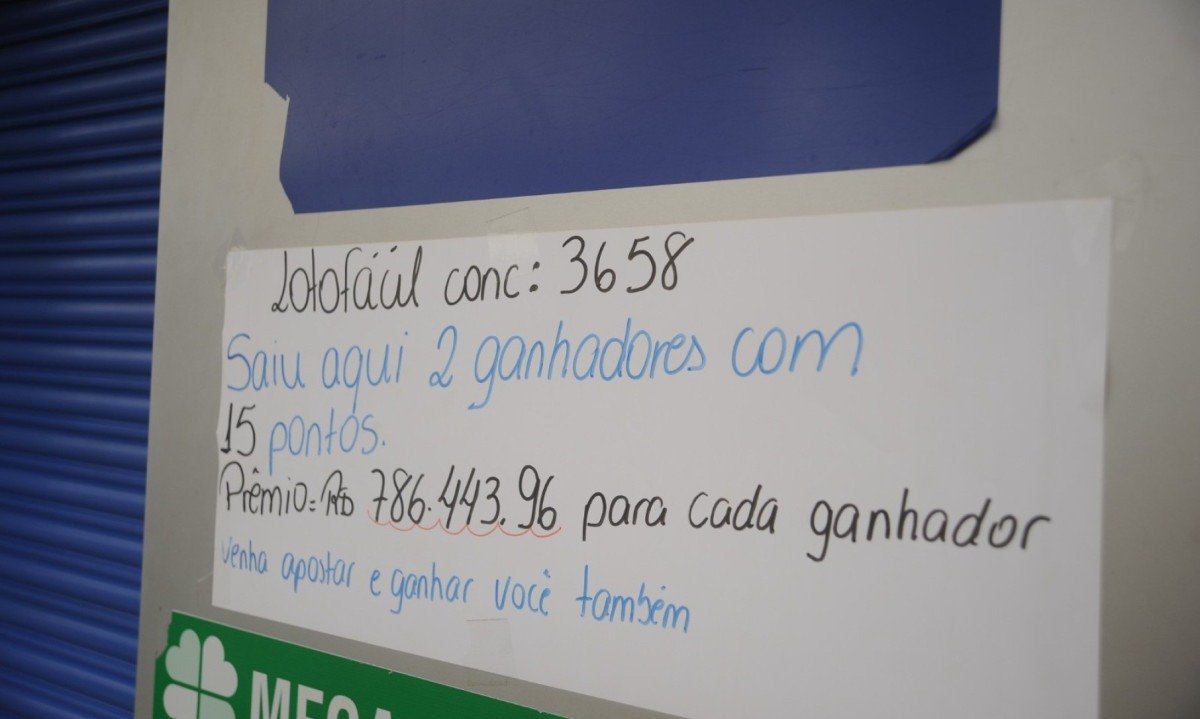 Lotofácil conc: 3658
Saiu aqui 2 ganhadores com
15 pontos.
Prêmio=R$ 786.443,96 para cada ganhador
venha apostar e ganhar você também
MEGA